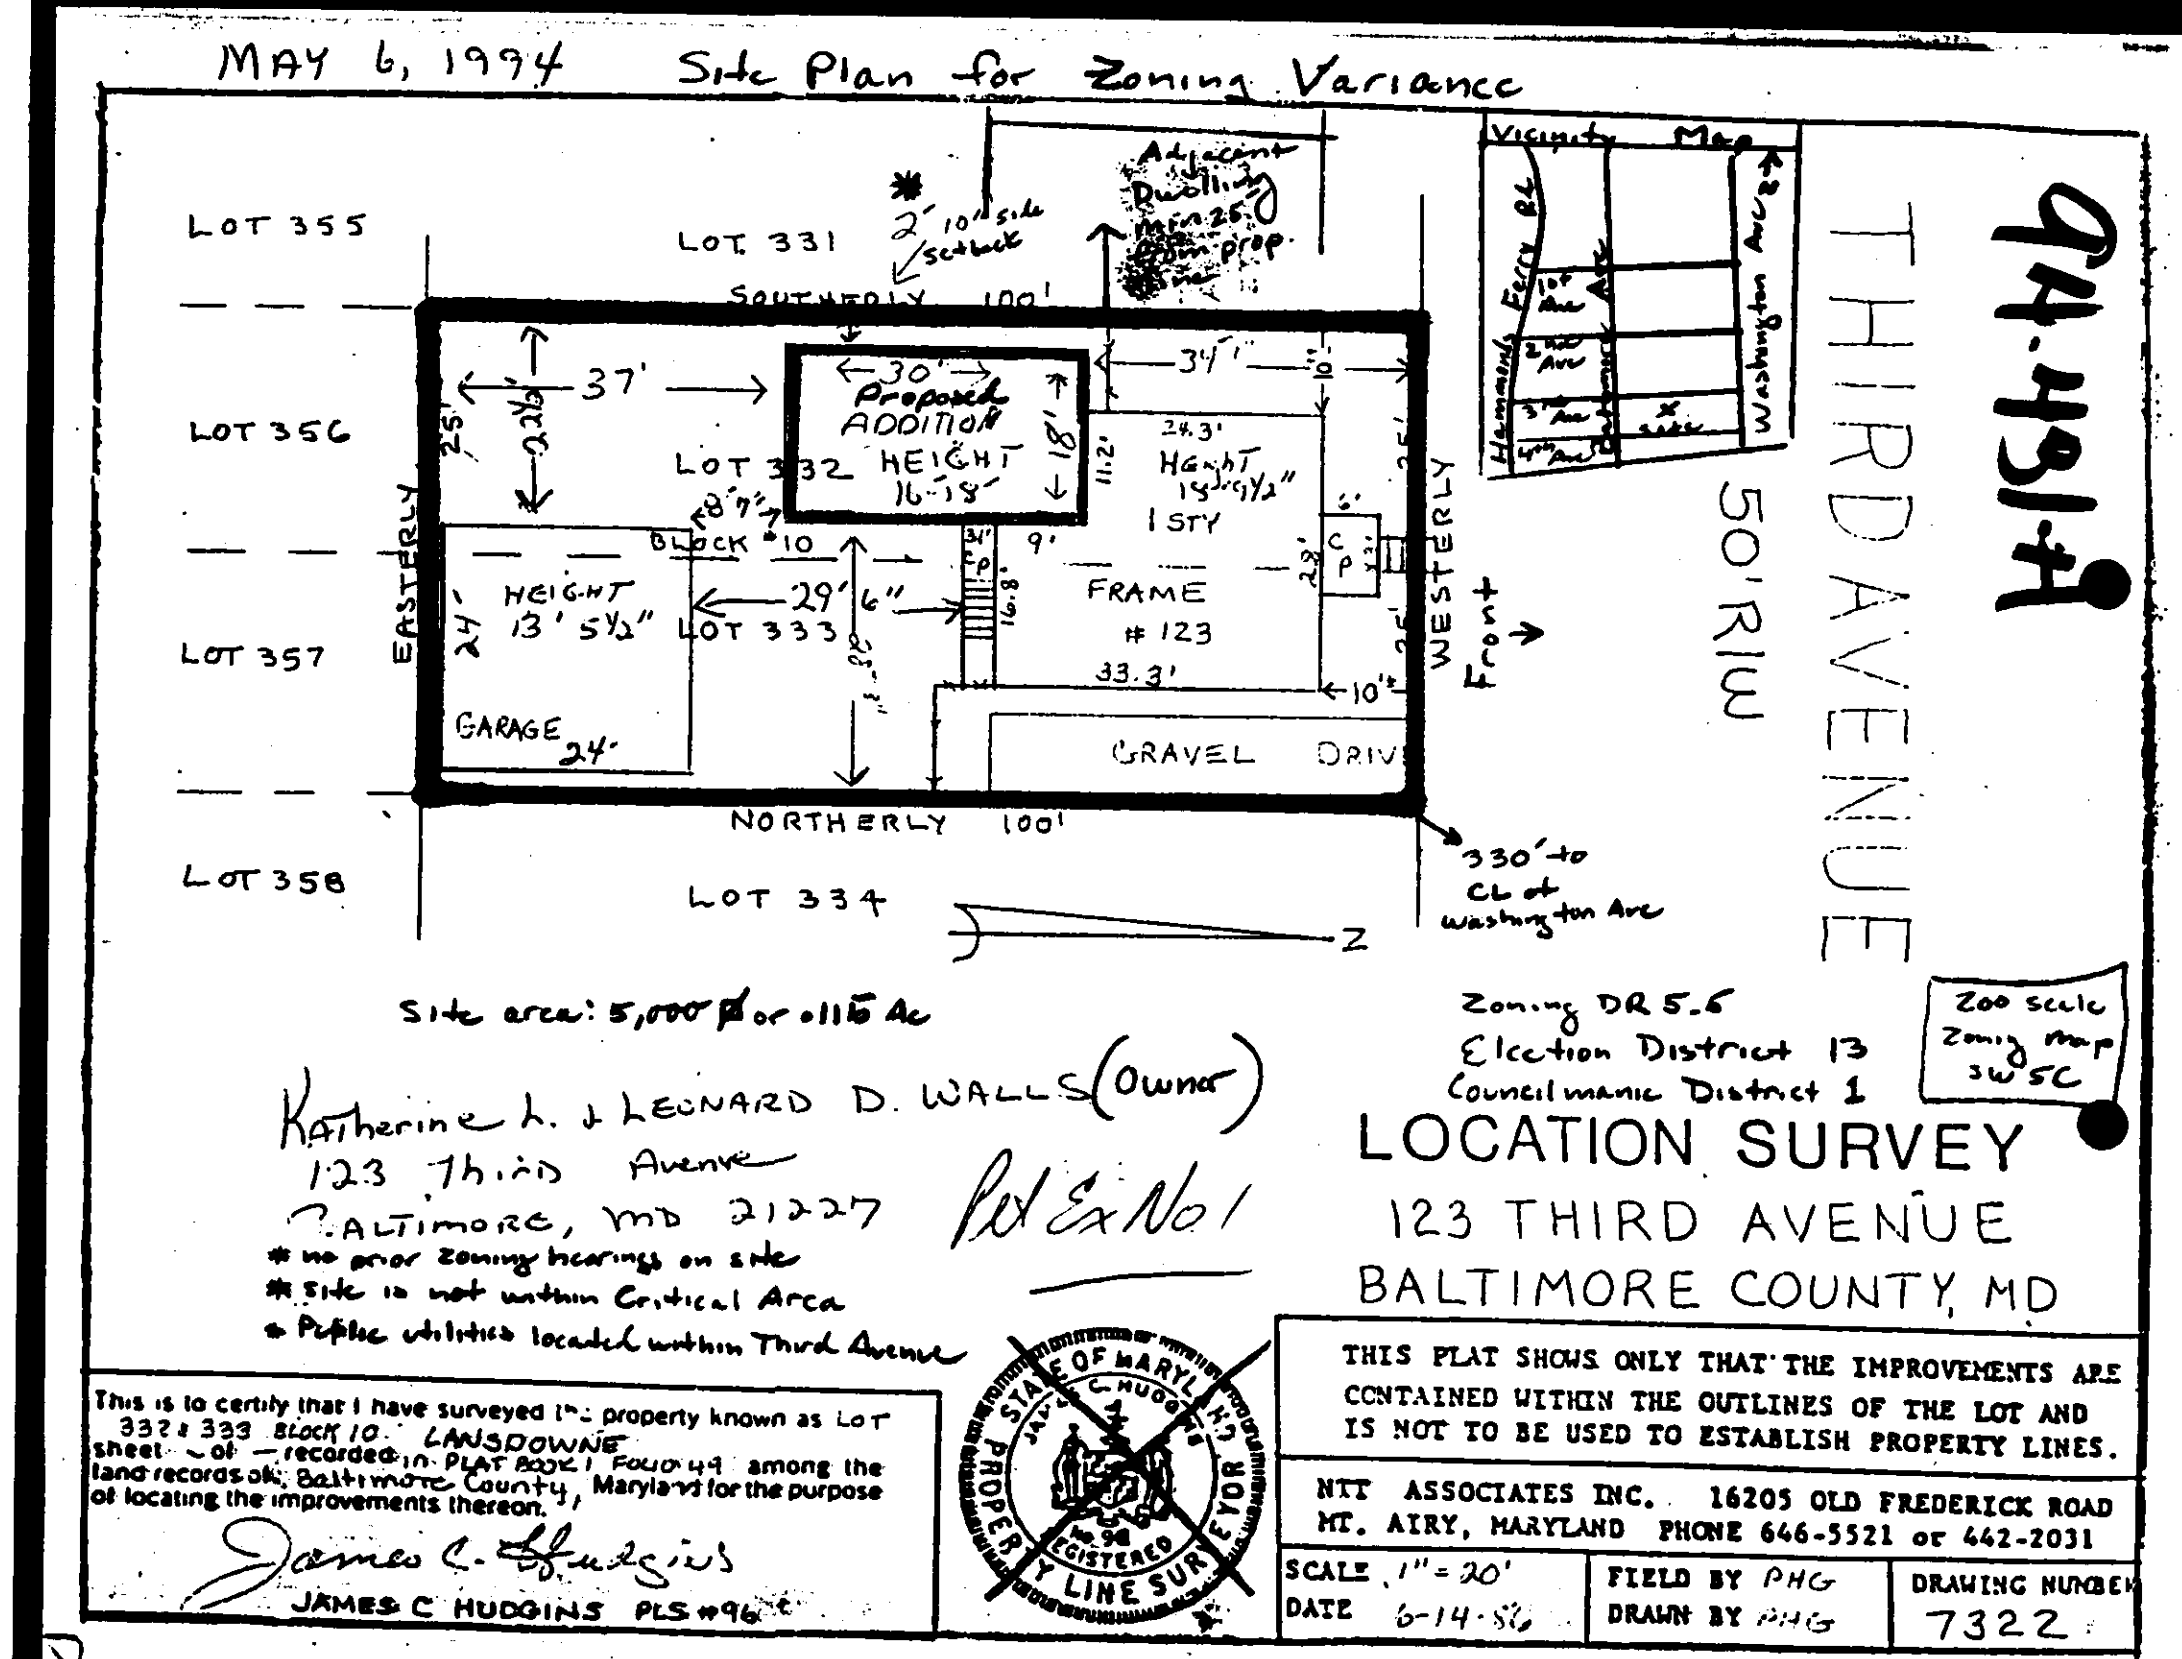 MAY 6, 1994 Site Plan for Zoning Variance
Vicinity Map
Hammonds Ferry Rd
1st Ave
2nd Ave
3rd Ave
4th Ave
Baltimore Ave
X site
Washington Ave
94-431-A
THIRD AVENUE
50' R/W
Adjacent
Dwelling
min 25'
from prop.
line
*
2' 10" side
setback
LOT 355
LOT 331
SOUTHERLY 100'
37'
22½'
25'
30'
Proposed
ADDITION
HEIGHT
16-18'
18'
34' 1"
10'
LOT 356
LOT 332
24.3'
HEIGHT
1 STY
11.2'
25'
8' 7"
BLOCK #10
EASTERLY
WESTERLY
9'
6'
CP
CP
28'
16.8'
HEIGHT
13' 5½"
29' 6"
FRAME
# 123
33.3'
LOT 357
24'
LOT 333
25'
10'±
Front
GARAGE
24'
GRAVEL DRIV
NORTHERLY 100'
LOT 358
LOT 334
Z
330' to
CL of
Washington Ave
Site area: 5,000 or .115 Ac
Zoning DR 5.5
Election District 13
Councilmanic District 1
200 scale
Zoning map
SW 5C
Katherine L. & LEONARD D. WALLS (Owner)
123 Third Avenue
BALTIMORE, MD 21227
* no prior zoning hearings on site
* site is not within Critical Area
* Public utilities located within Third Avenue
Pet Ex No 1
LOCATION SURVEY
123 THIRD AVENUE
BALTIMORE COUNTY, MD
This is to certify that I have surveyed the property known as LOT
332 & 333 BLOCK 10 LANSDOWNE
sheet - of - recorded in PLAT BOOK 1 FOLIO 49 among the
land records of Baltimore County, Maryland for the purpose
of locating the improvements thereon.
James C. Hudgins
JAMES C HUDGINS PLS #96
STATE OF MARYLAND
JAMES C. HUDGINS
No 96
REGISTERED
PROPERTY LINE SURVEYOR
THIS PLAT SHOWS ONLY THAT THE IMPROVEMENTS ARE
CONTAINED WITHIN THE OUTLINES OF THE LOT AND
IS NOT TO BE USED TO ESTABLISH PROPERTY LINES.
NTT ASSOCIATES INC. 16205 OLD FREDERICK ROAD
MT. AIRY, MARYLAND PHONE 646-5521 or 442-2031
SCALE 1" = 20'
DATE 6-14-86
FIELD BY PHG
DRAWN BY PHG
DRAWING NUMBER
7322